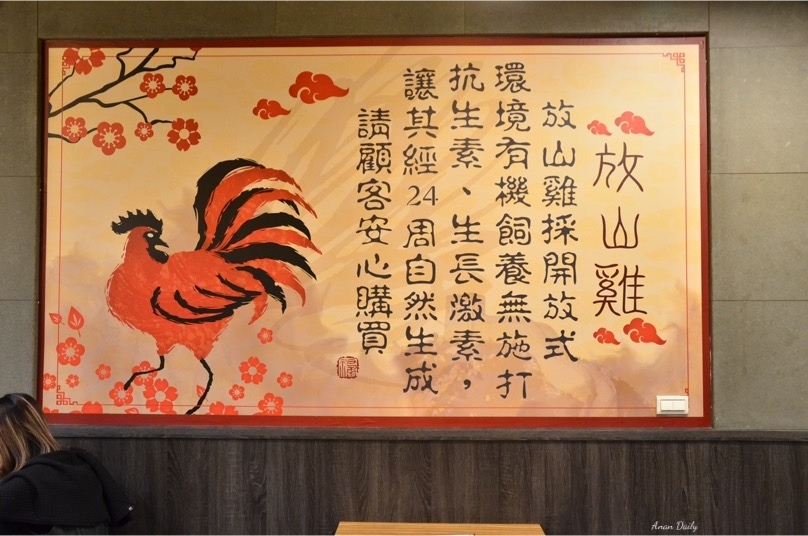 放山雞
放山雞採開放式
環境有機飼養無施打
抗生素、生長激素，
讓其經24周自然生成
請顧客安心購買
Anan Daily